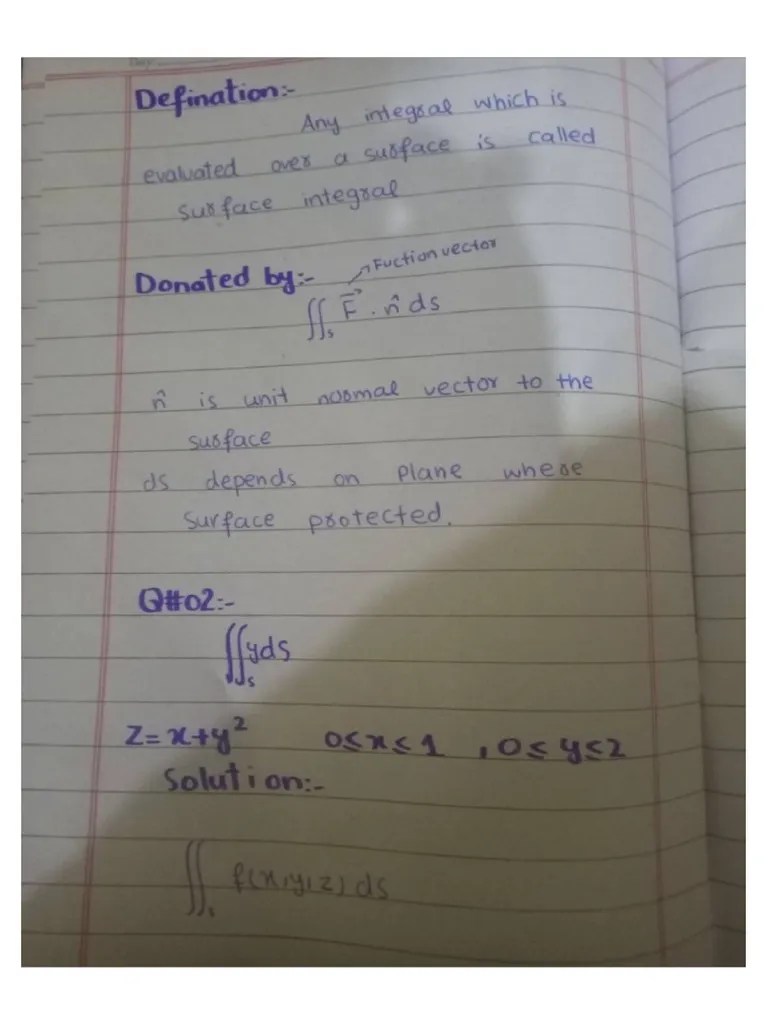 Day:
Defination:-
Any integral which is
evaluated over a surface is called
surface integral
Donated by:-
Fuction vector
∬ₛ F⃗ . n̂ ds
n̂ is unit normal vector to the
surface
ds depends on plane where
surface protected.
Q#02:-
∬ₛ yds
Z=x+y² 0≤x≤1 , 0≤y≤2
Solution:-
∬ₛ f(x,y,z) ds